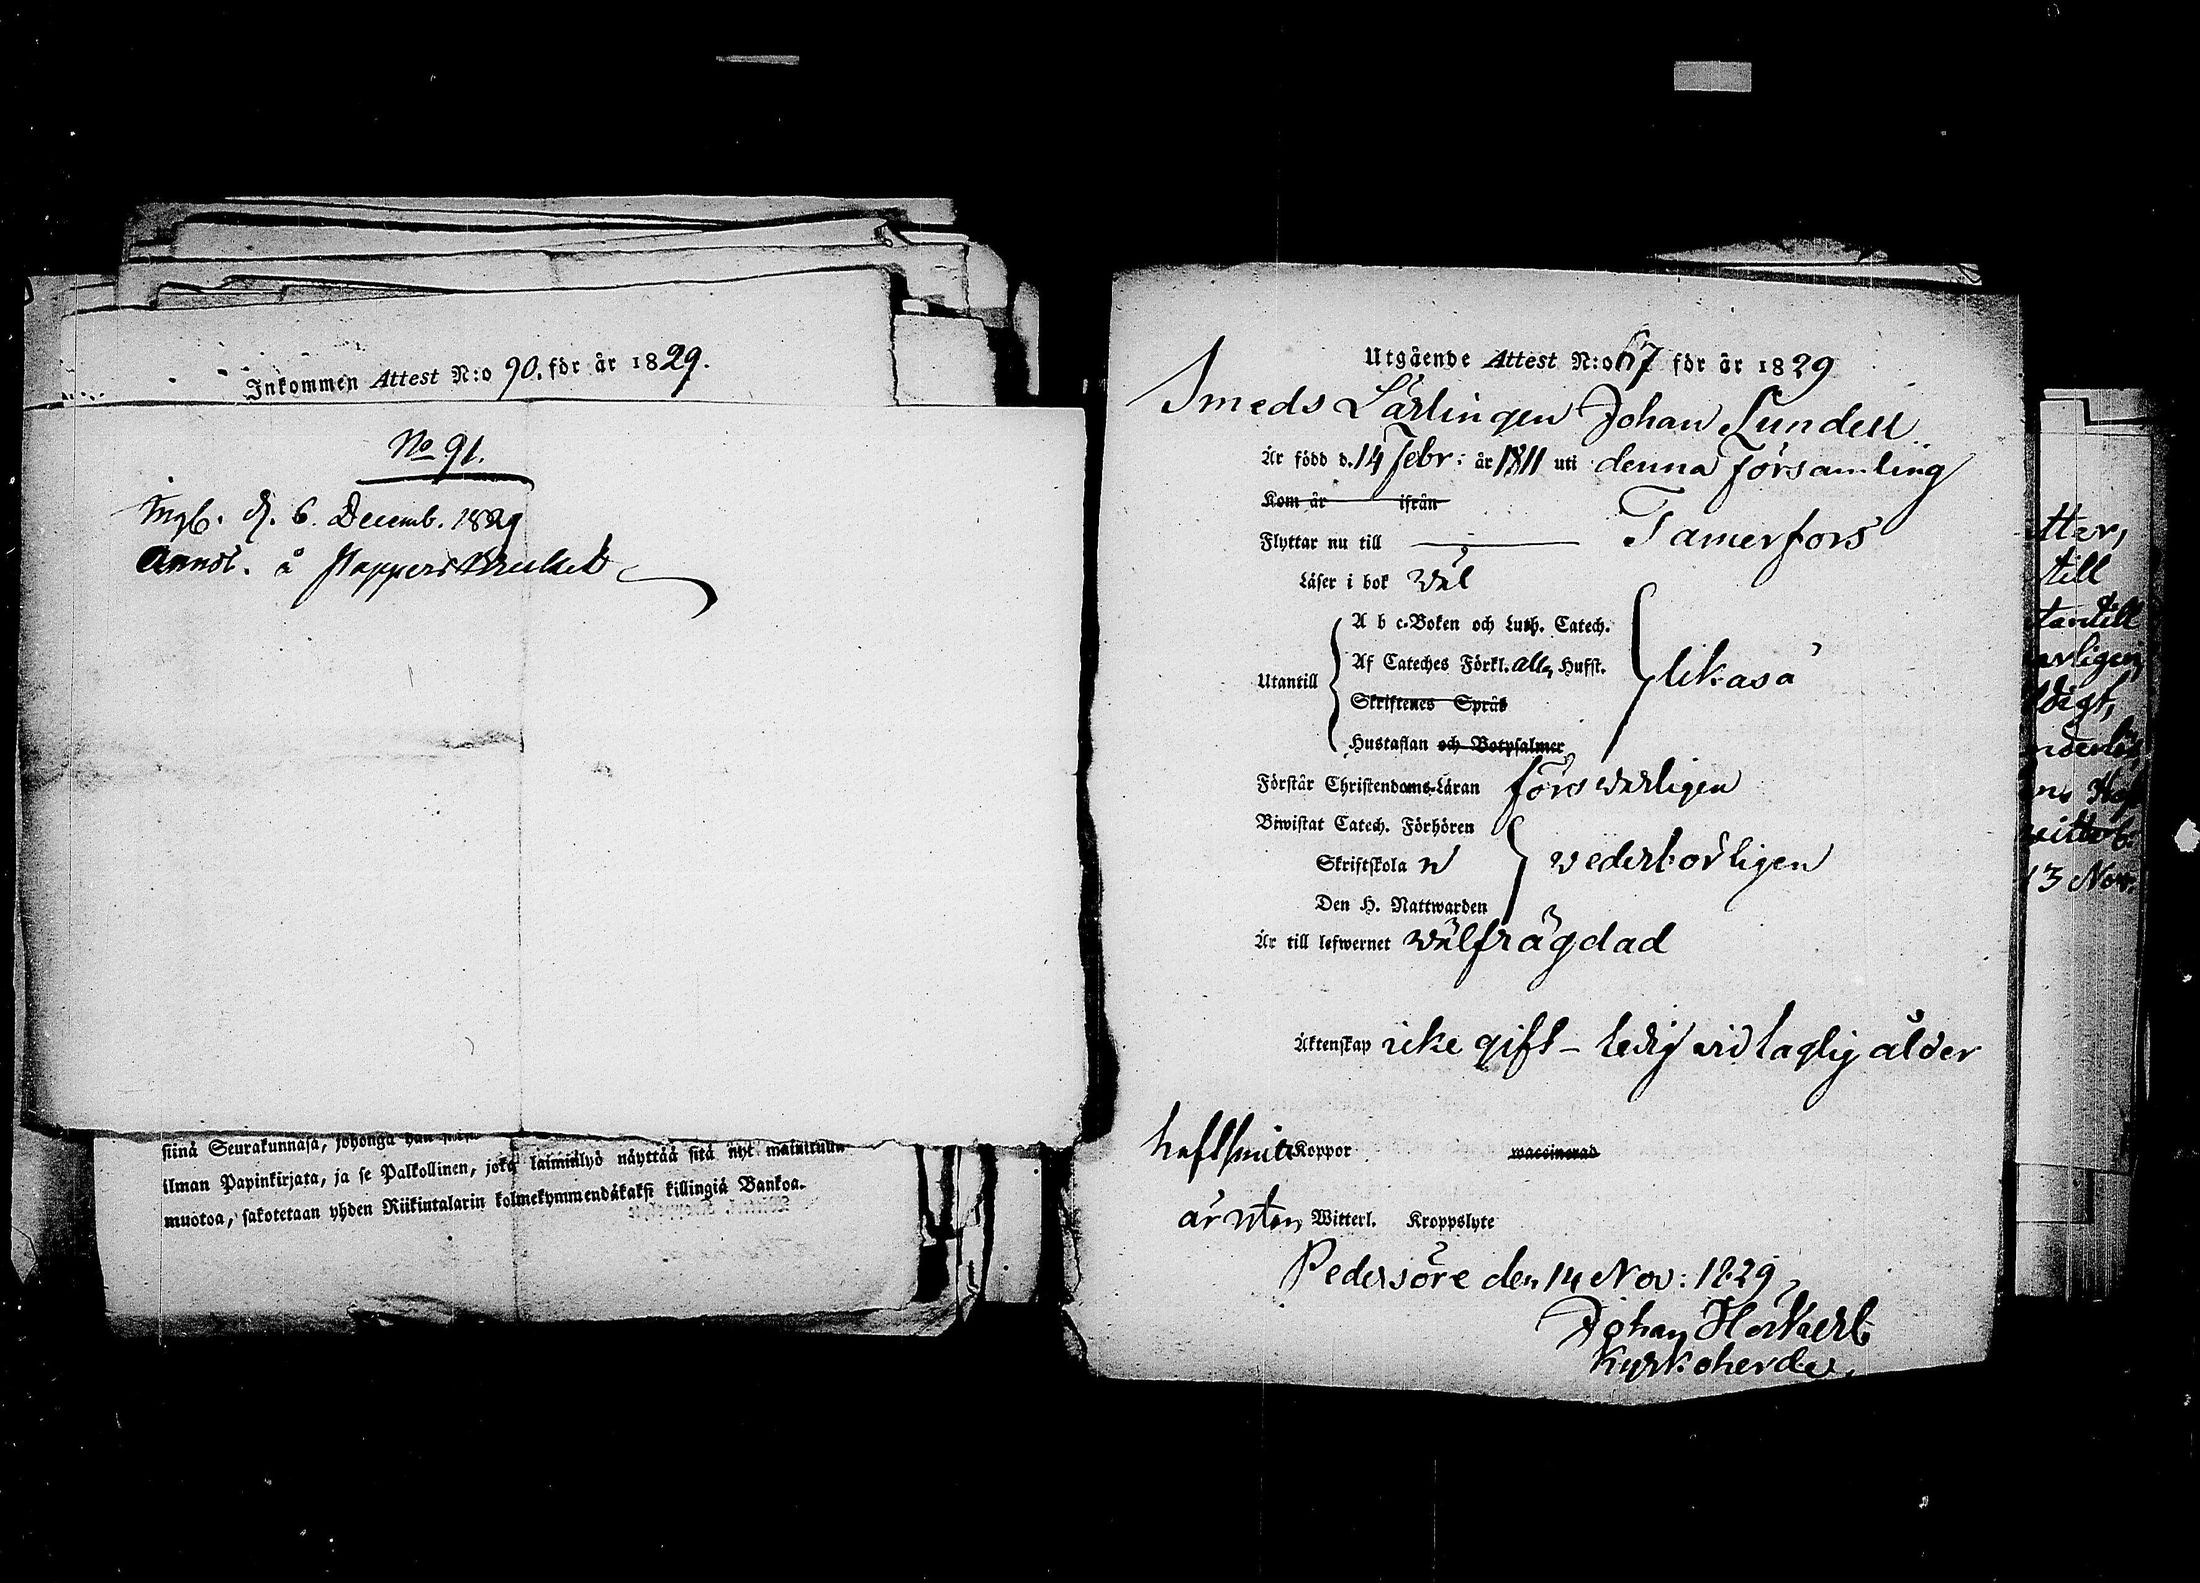 Inkommen Attest N:o 90. för år 1829.
No 91.
d. 6. Decemb. 1829
å
siinä Seurakunnasa, johonga hän
ilman Papinkirjata, ja se Palkollinen, joka laiminlyö näyttää sitä nyt mainitulla
muotoa, sakotetaan yhden Riikintalarin kolmekymmendäkaksi killingiä Bankoa.
Utgående Attest N:o 67 för år 1829
Smeds Lärlingen Johan Lundell
Är född d. 14 Febr: år 1811 uti denna Församling
Kom år ifrån
Flyttar nu till Tamerfors
Läser i bok wäl
Utantill
A b c-Boken och Luth. Catech.
Af Cateches Förkl. alla Hufst.
likaså
Skriftenes Språk
Hustaflan och Botpsalmer
Förstår Christendoms-Läran förswarligen
Biwistat Catech. Förhören
Skriftskola
wederbörligen
Den H. Nattwarden
Är till lefwernet wälfrägdad
Äktenskap icke gift - ledig wid laglig ålder
haft Koppor waccinerad
är utan Witterl. Kroppslyte
Pedersöre den 14 Nov: 1829
Johan
Kyrkoherde.
till
13 Nov.